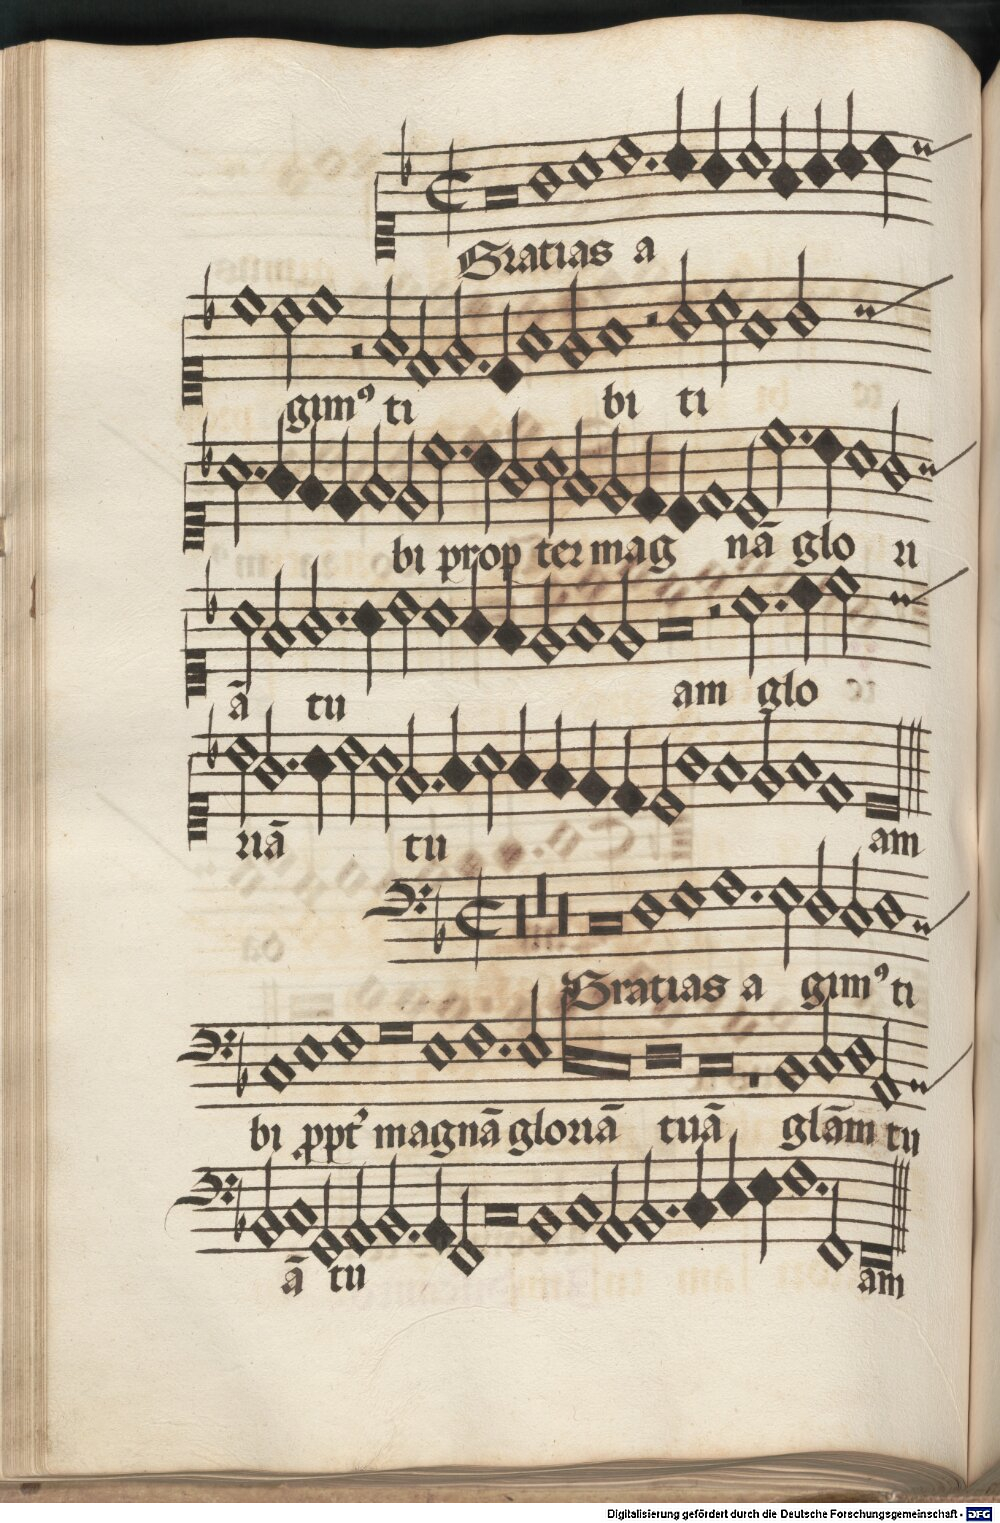 Gratias a
gimꝰ ti bi ti
bi prop ter mag nā glo ri
ā tu am glo
riā tu am
Gratias a gimꝰ ti
bi ꝓpt' magnā gloriā tuā glām tu
ā tu am
Digitalisierung gefördert durch die Deutsche Forschungsgemeinschaft - DFG